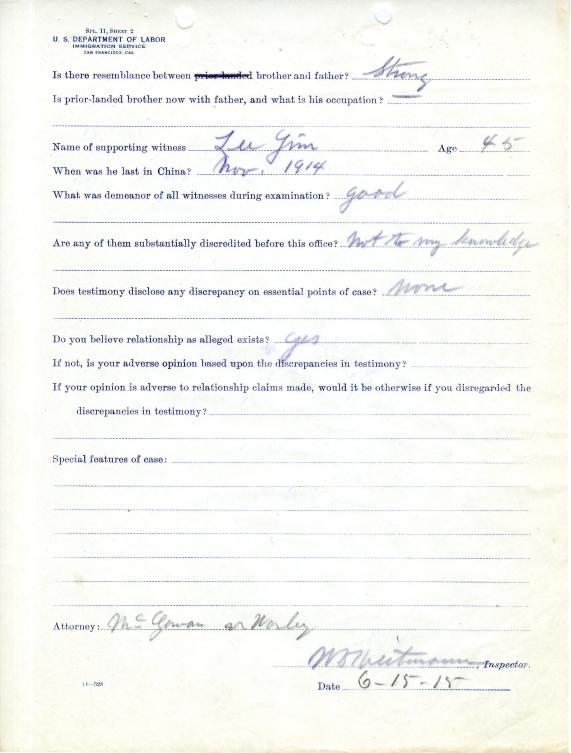 SPL. 11, SHEET 2
U. S. DEPARTMENT OF LABOR
IMMIGRATION SERVICE
SAN FRANCISCO, CAL.
Is there resemblance between prior-landed brother and father? Strong
Is prior-landed brother now with father, and what is his occupation? —
Name of supporting witness Lee Gim Age 45
When was he last in China? Nov. 1914
What was demeanor of all witnesses during examination? good
Are any of them substantially discredited before this office? not to my knowledge
Does testimony disclose any discrepancy on essential points of case? none
Do you believe relationship as alleged exists? yes
If not, is your adverse opinion based upon the discrepancies in testimony?
If your opinion is adverse to relationship claims made, would it be otherwise if you disregarded the
discrepancies in testimony?
Special features of case:
Attorney: McGowan & Worley
, Inspector.
Date 6-15-15
11—528